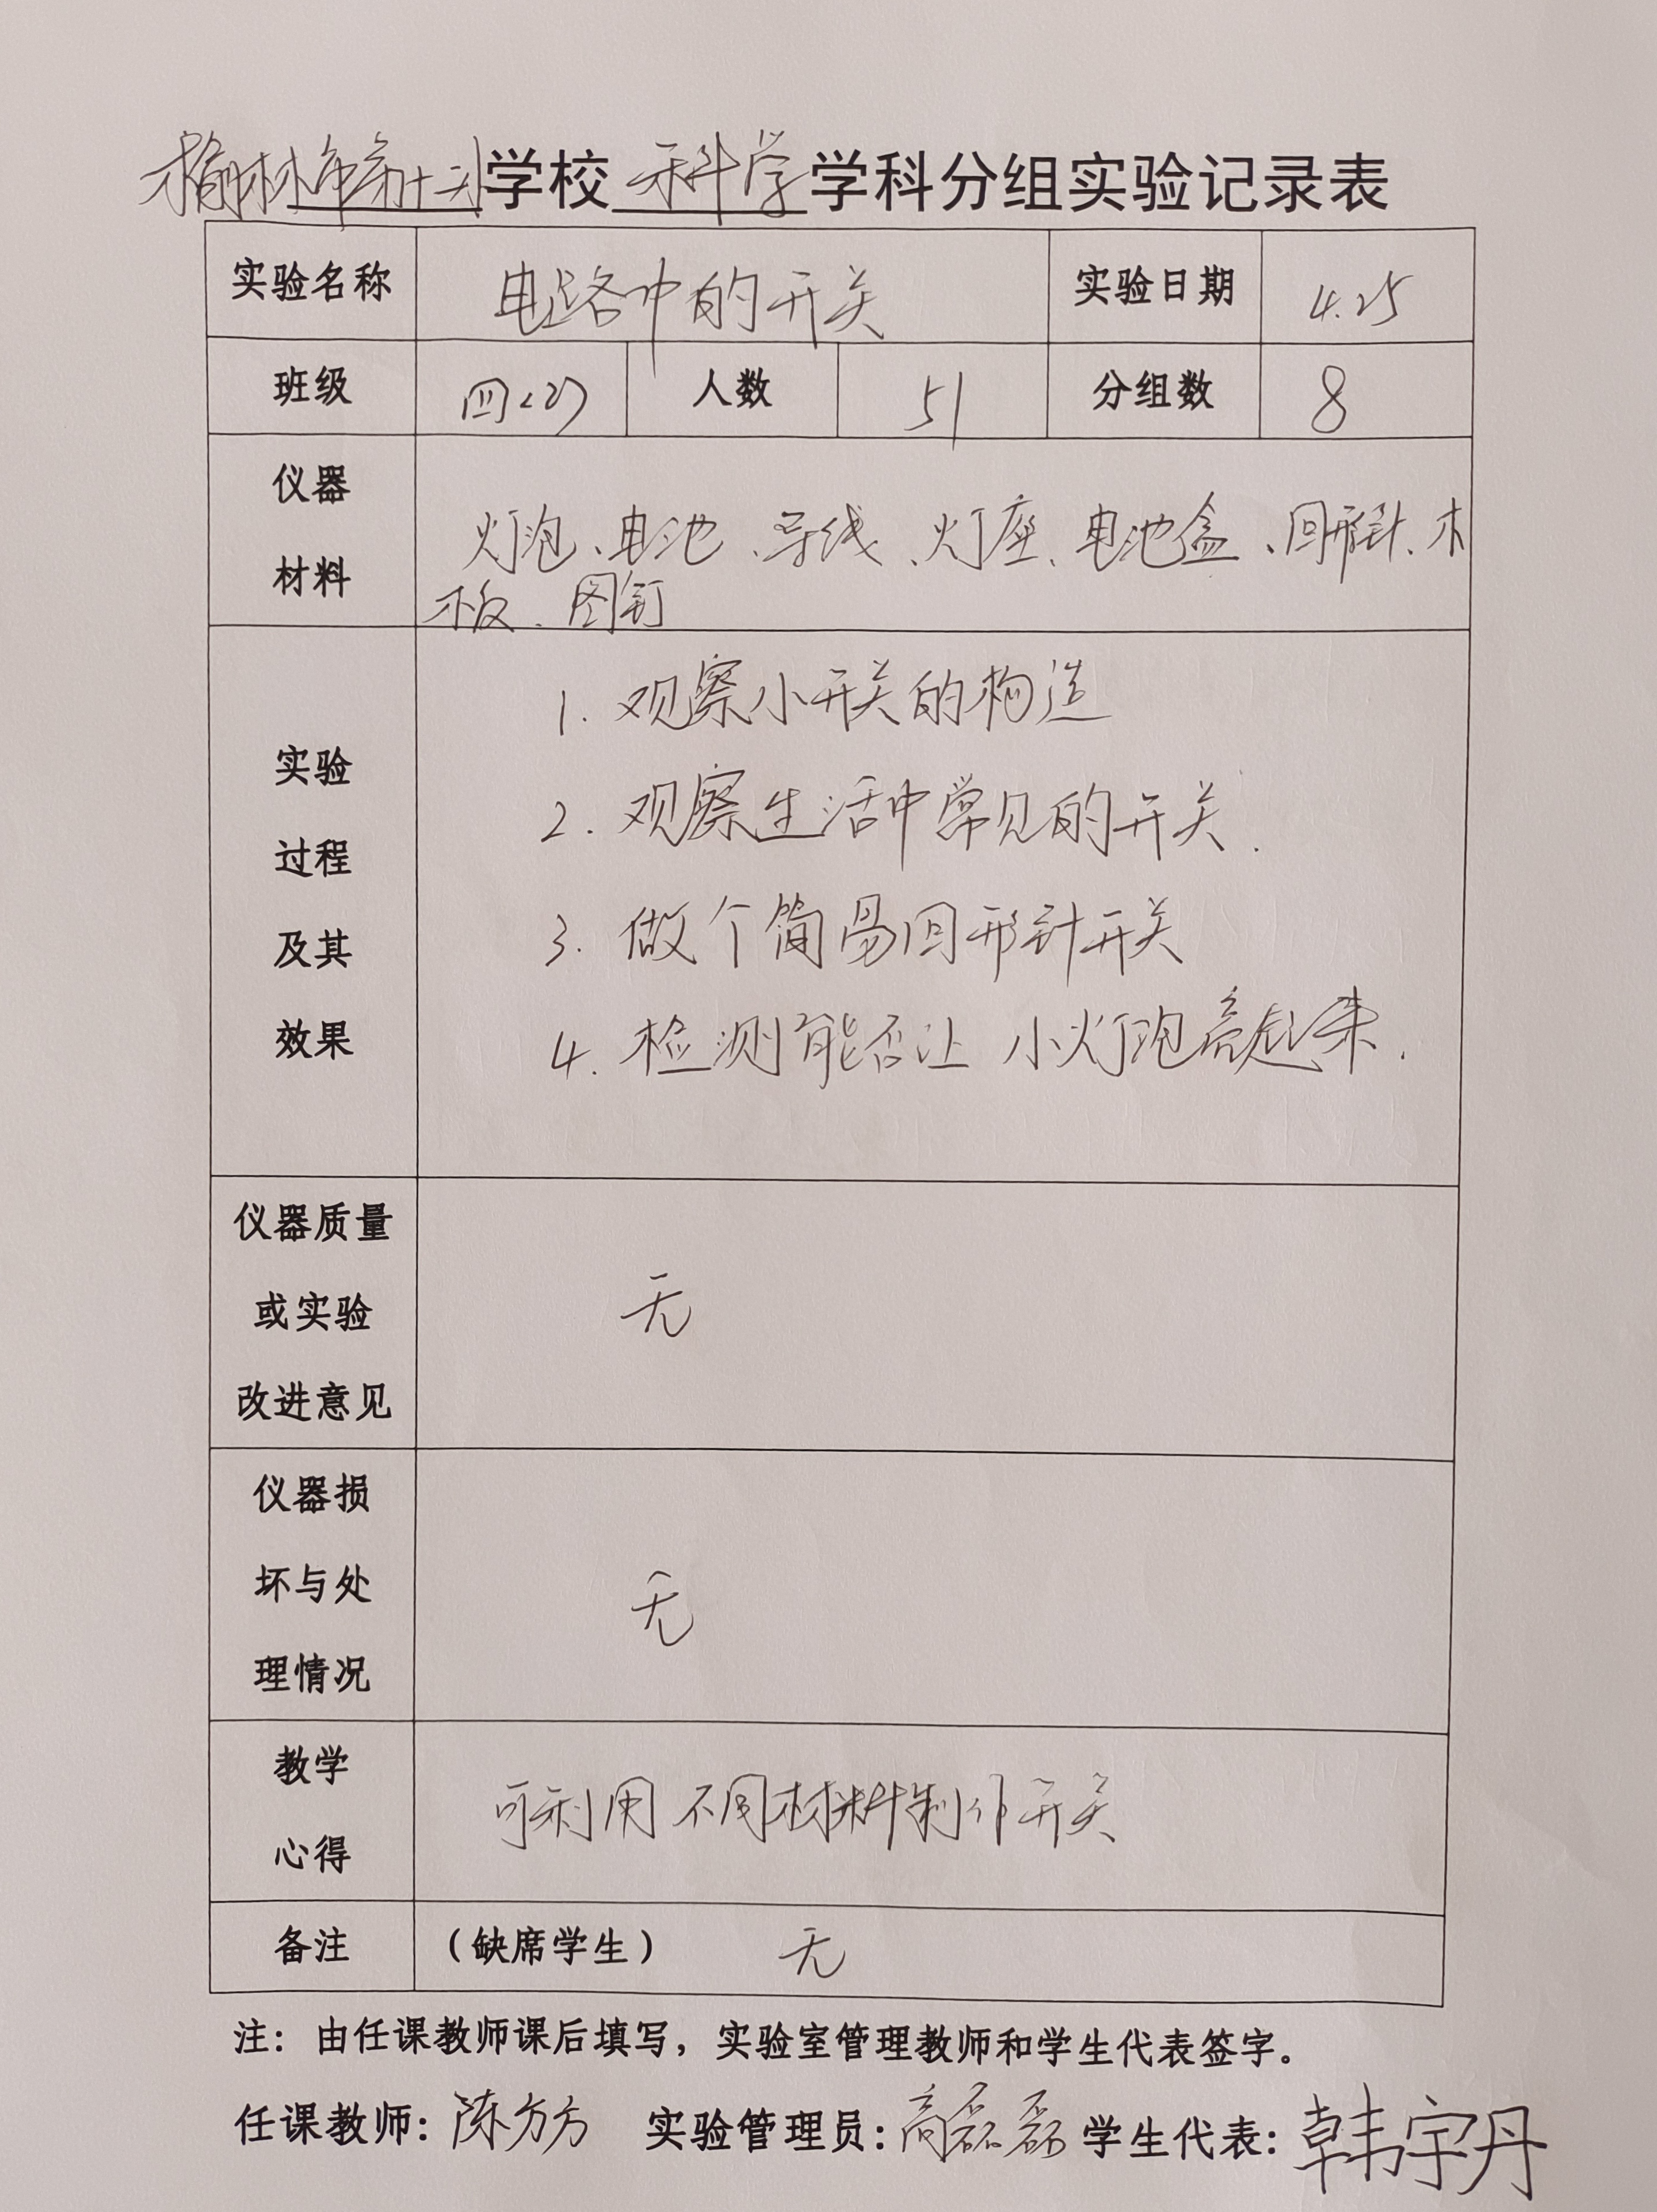 榆林市第十六学校 科学 学科分组实验记录表
实验名称 电路中的开关 实验日期 4.25
班级 四(2) 人数 51 分组数 8
仪器
材料
灯泡、电池、导线、灯座、电池盒、回形针、木
板、图钉
实验
过程
及其
效果
1. 观察小开关的构造
2. 观察生活中常见的开关.
3. 做个简易回形针开关
4. 检测能否让小灯泡亮起来.
仪器质量
或实验
改进意见
无
仪器损
坏与处
理情况
无
教学
心得
可利用不同材料制作开关
备注 (缺席学生) 无
注：由任课教师课后填写，实验室管理教师和学生代表签字。
任课教师：陈方方 实验管理员：高磊磊 学生代表：韩宇丹